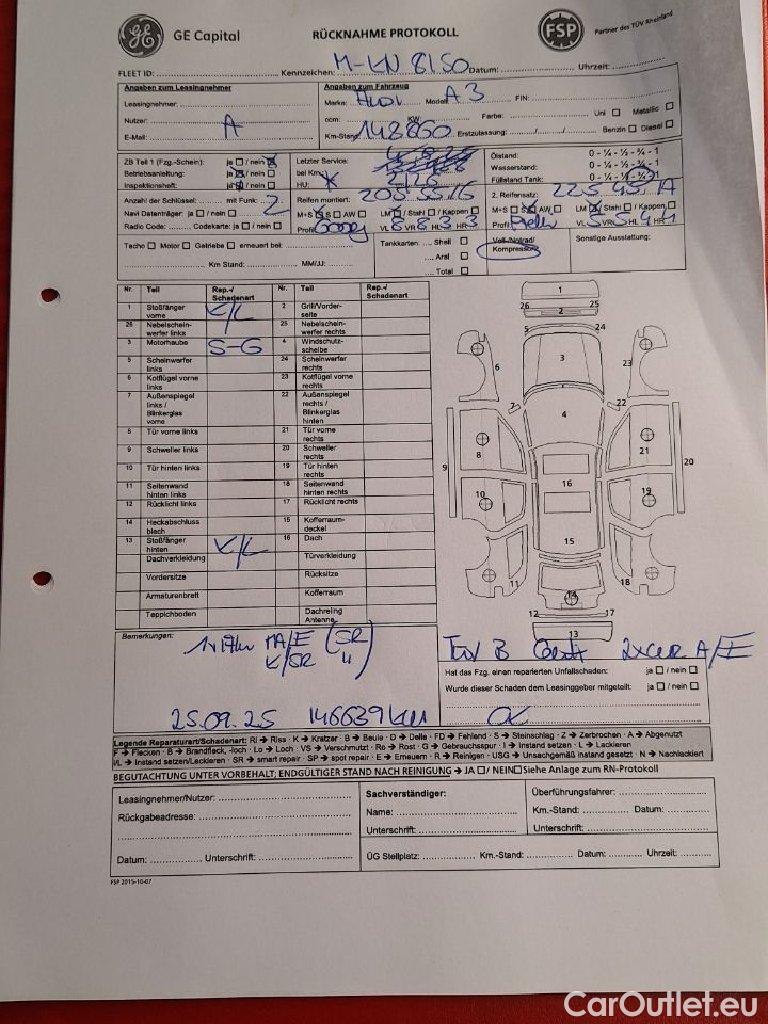 GE Capital
RÜCKNAHME PROTOKOLL
FSP
Partner des TÜV Rheinland
FLEET ID: Kennzeichen: M-LN 8150 Datum: Uhrzeit:
Angaben zum Leasingnehmer
Leasingnehmer:
Nutzer: A
E-Mail:
Angaben zum Fahrzeug
Marke: Audi Modell: A3 FIN:
ccm: KW Farbe: Uni ☐ Metallic ☐
Km-Stand: 148860 Erstzulassung: / / Benzin ☐ Diesel ☐
ZB Teil 1 (Fzg.-Schein): ja ☐ / nein ☒
Betriebsanleitung: ja ☒ / nein ☐
Inspektionsheft: ja ☒ / nein ☐
Letzter Service:
bei Km:
HU:
Ölstand: 0 - ¼ - ½ - ¾ - 1
Wasserstand: 0 - ¼ - ½ - ¾ - 1
Füllstand Tank: 0 - ¼ - ½ - ¾ - 1
Anzahl der Schlüssel: mit Funk: 2
Navi Datenträger: ja ☐ / nein ☐
Radio Code: Codekarte: ja ☐ / nein ☐
Reifen montiert: 205 55 16
M+S ☐ S ☐ AW ☐ LM ☐ / Stahl ☐ / Kappen ☐
Profil: Goody VL 8 VR 8 HL 3 HR 3
2. Reifensatz: 225 45 A
M+S ☐ S ☒ AW ☐ LM ☒ / Stahl ☐ / Kappen ☐
Profil: VL 5 VR 5 HL 4 HR 4
Techo ☐ Motor ☐ Getriebe ☐ erneuert bei:
Km Stand: MM/JJ:
Tankkarten: Shell ☐
Aral ☐
Total ☐
Voll-/Notrad/
Kompressor
Sonstige Ausstattung:
Nr. Teil Rep.-/ Schadenart Nr. Teil Rep.-/ Schadenart
1 Stoßfänger vorne K/L 2 Grill/Vorderseite
26 Nebelscheinwerfer links 25 Nebelscheinwerfer rechts
3 Motorhaube S-G 4 Windschutzscheibe
5 Scheinwerfer links 24 Scheinwerfer rechts
6 Kotflügel vorne links 23 Kotflügel vorne rechts
7 Außenspiegel links / Blinkerglas vorne 22 Außenspiegel rechts / Blinkerglas hinten
8 Tür vorne links 21 Tür vorne rechts
9 Schweller links 20 Schweller rechts
10 Tür hinten links 19 Tür hinten rechts
11 Seitenwand hinten links 18 Seitenwand hinten rechts
12 Rücklicht links 17 Rücklicht rechts
14 Heckabschluss blech 15 Kofferraum-deckel
13 Stoßfänger hinten K/L 16 Dach
Dachverkleidung Türverkleidung
Vordersitze Rücksitze
Armaturenbrett Kofferraum
Teppichboden Dachreling Antenne
1
26 25
2
5 24
3
6 23
7 22
4
8 21
9 20
16
10 19
15
11 18
14
12 17
13
Bemerkungen:
K/SR
25.09.25 146639 km
A/E
Hat das Fzg. einen reparierten Unfallschaden: ja ☐ / nein ☐
Wurde dieser Schaden dem Leasinggeber mitgeteilt: ja ☐ / nein ☐
OK
Legende Reparaturart/Schadenart: Ri → Riss · K → Kratzer · B → Beule · D → Delle · FD → Fehlend · S → Steinschlag · Z → Zerbrochen · A → Abgenutzt
F → Flecken · B → Brandfleck, -loch · Lo → Loch · VS → Verschmutzt · Ro → Rost · G → Gebrauchsspur · I → Instand setzen · L → Lackieren
I/L → Instand setzen/Lackieren · SR → smart repair · SP → spot repair · E → Erneuern · R → Reinigen · USG → Unsachgemäß instand gesetzt · N → Nachlackiert
BEGUTACHTUNG UNTER VORBEHALT; ENDGÜLTIGER STAND NACH REINIGUNG → JA ☐ / NEIN ☐ Siehe Anlage zum RN-Protokoll
Leasingnehmer/Nutzer:
Rückgabeadresse:
Datum: Unterschrift:
Sachverständiger:
Name:
Unterschrift:
Überführungsfahrer:
Km.-Stand: Datum:
Unterschrift:
ÜG Stellplatz: Km.-Stand: Datum: Uhrzeit:
FSP 2015-10-07
CarOutlet.eu